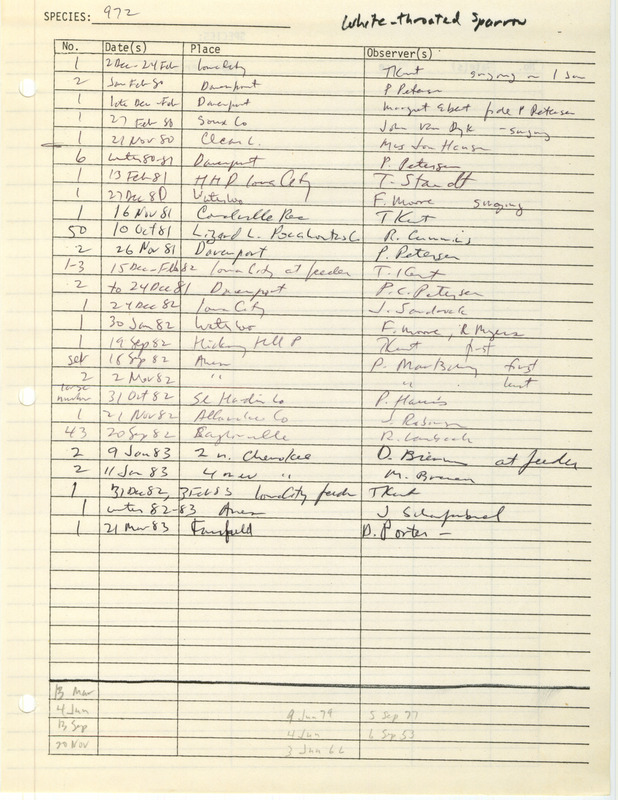 SPECIES: 972 White-throated Sparrow
No. Date(s) Place Observer(s)
1 2 Dec - 24 Feb Iowa City TKent singing on 1 Jan
2 Jan Feb 80 Davenport P Petersen
1 Dec - Feb Davenport Margret Ebert fide P Petersen
1 27 Feb 80 Sioux Co John Van Dyk - singing
1 21 Nov 80 Clear L. Mrs Jon Hansen
6 winter 80-81 Davenport P. Petersen
1 13 Feb 81 Iowa City T. Staudt
1 27 Dec 80 Waterloo F. Moore singing
1 16 Nov 81 Coralville Res TKent
50 10 Oct 81 Lizard L. Pocahontas Co R. Cummins
2 26 Nov 81 Davenport P. Petersen
1-3 15 Dec - Feb 82 Iowa City at feeder T. Kent
2 to 24 Dec 81 Davenport P.C. Petersen
1 24 Dec 82 Iowa City J. Sandrock
1 30 Jan 82 Waterloo F. Moore, R Myers
1 19 Sep 82 Hickory Hill P TKent first
sev 16 Sep 82 Ames P. Martsching first
2 2 Nov 82 " " last
large number 31 Oct 82 SE Hardin Co P. Harris
1 21 Nov 82 Allamakee Co J. Robinson
43 20 Sep 82
2 9 Jan 83 2 n. Cherokee D. Bierman at feeder
2 11 Jan 83 4 " M.
1 31 Dec 82, 3 Feb 83 Iowa City feeder TKent
1 winter 82-83 Ames J
1 21 Mar 83 Fairfield D. Porter -
13 Mar
4 Jun 9 Jun 79 5 Sep 77
13 Sep 4 Jun 6 Sep 53
20 Nov 3 Jun 66